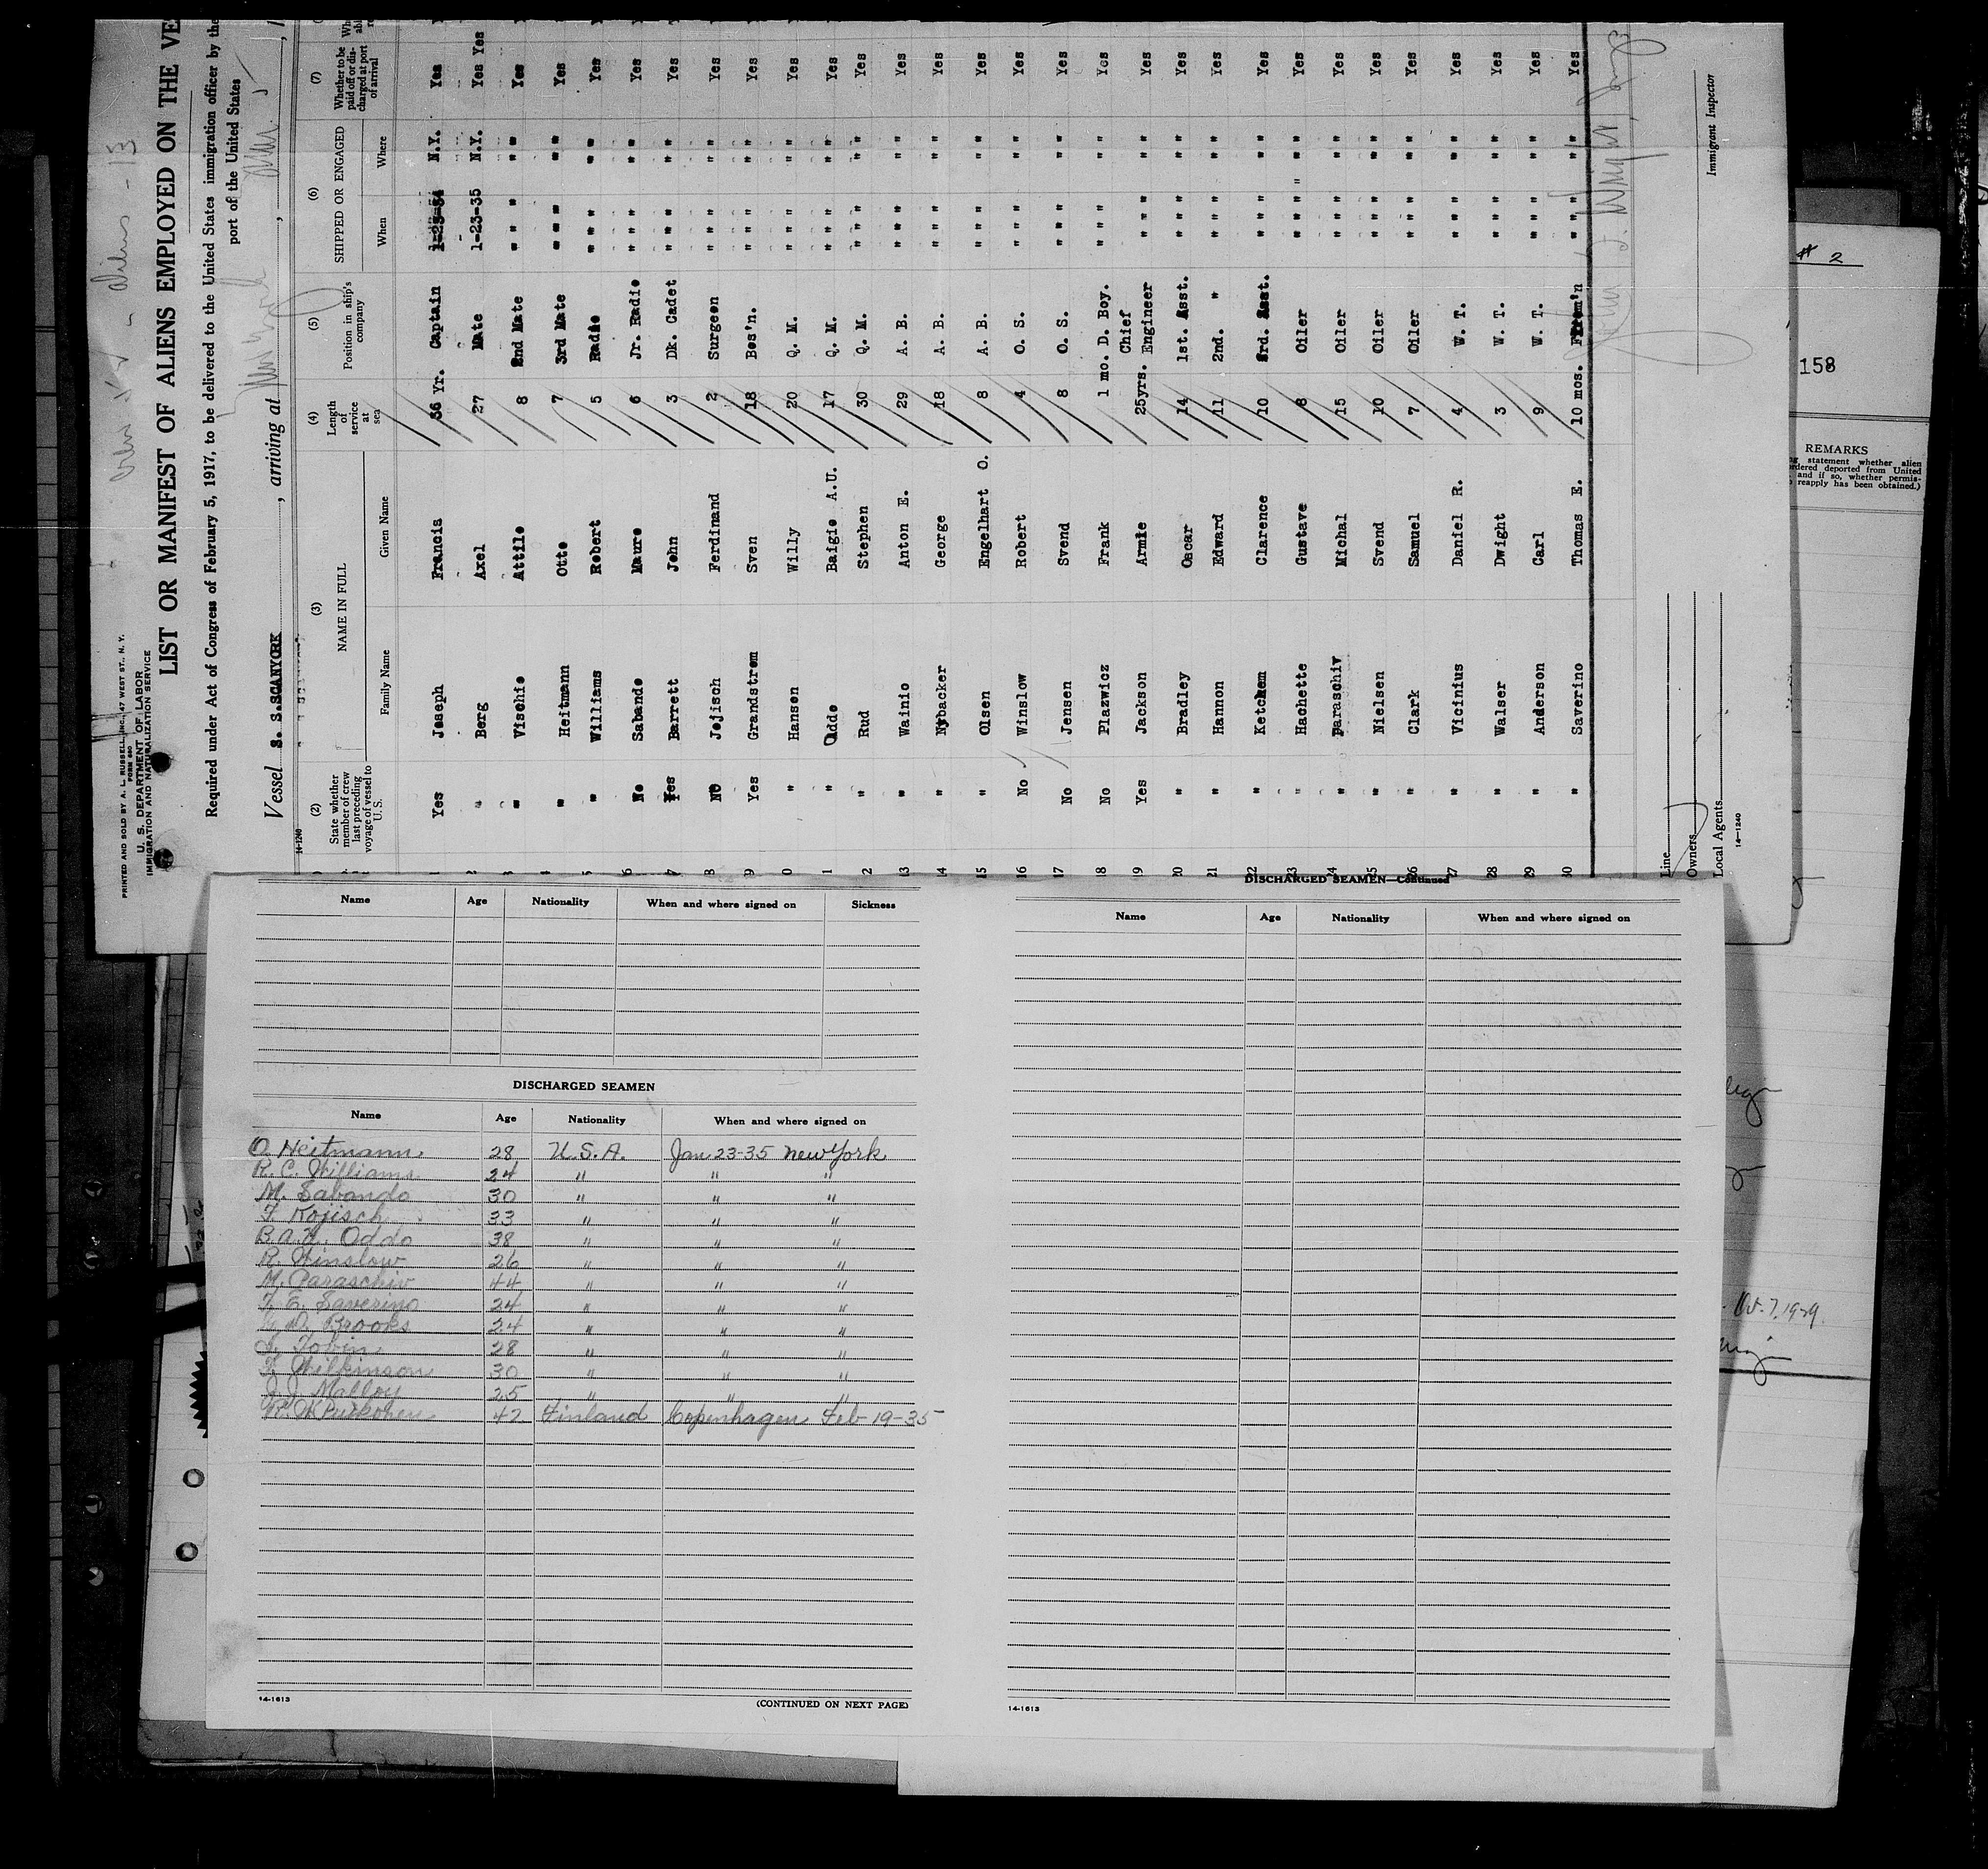 Crew - Aliens - 13
PRINTED AND SOLD BY A. L. RUSSELL, INC., 47 WEST ST., N. Y.
FORM 680
U. S. DEPARTMENT OF LABOR
IMMIGRATION AND NATURALIZATION SERVICE
LIST OR MANIFEST OF ALIENS EMPLOYED ON THE VE
Required under Act of Congress of February 5, 1917, to be delivered to the United States immigration officer by the
port of the United States
Vessel S. S. SCANYORK, arriving at New York,
14-1240
(2) (3) (4) (5) (6) (7)
State whether member of crew last preceding voyage of vessel to U. S.
NAME IN FULL
Family Name Given Name
Length of service at sea
Position in ship's company
SHIPPED OR ENGAGED
When Where
Whether to be paid off or discharged at port of arrival
1 Yes Joseph Francis 36 Yr. Captain 1-23-34 N.Y. Yes
2 " Berg Axel 27 Mate 1-23-35 N.Y. Yes Yes
3 " Vischio Attilo 8 2nd Mate " " " " " Yes
4 " Heitmann Otto 7 3rd Mate " " " " " Yes
5 " Williams Robert 5 Radio " " " " " Yes
6 No Sabando Mauro 6 Jr. Radio " " " " " Yes
7 Yes Barrett John 3 Dk. Cadet " " " " " Yes
8 NO Jojisch Ferdinand 2 Surgeon " " " " " Yes
9 Yes Grandstrom Sven 18 Bos'n. " " " " " Yes
0 " Hansen Willy 20 Q. M. " " " " " Yes
1 " Oddo Baigio A.U. 17 Q. M. " " " " " Yes
2 " Rud Stephen 30 Q. M. " " " " " Yes
13 " Wainio Anton E. 29 A. B. " " " " " Yes
14 " Nybacker George 18 A. B. " " " " " Yes
15 " Olsen Engelhart O. 8 A. B. " " " " " Yes
16 No Winslow Robert 4 O. S. " " " " " Yes
17 No Jensen Svend 8 O. S. " " " " " Yes
18 No Plazwicz Frank 1 mo. D. Boy. " " " " " Yes
19 Yes Jackson Armie 25yrs. Chief Engineer " " " " " Yes
20 " Bradley Oscar 14 1st. Asst. " " " " " Yes
21 " Hannon Edward 11 2nd. " " " " " " Yes
22 " Ketchem Clarence 10 3rd. Asst. " " " " " Yes
23 " Hachette Gustave 8 Oiler " " " " " Yes
24 " Paraschiv Michal 15 Oiler " " " " " Yes
25 " Nielsen Svend 10 Oiler " " " " " Yes
26 " Clark Samuel 7 Oiler " " " " " Yes
27 " Vicinius Daniel R. 4 W. T. " " " " " Yes
28 " Walser Dwight 3 W. T. " " " " " Yes
29 " Anderson Carl 9 W. T. " " " " " Yes
30 " Saverino Thomas E. 10 mos. Firem'n " " " " " Yes
Line
Owners
Local Agents
14—1240
Immigrant Inspector
# 2
158
REMARKS
statement whether alien
ordered deported from United
and if so, whether permis-
reapply has been obtained.)
Name Age Nationality When and where signed on Sickness
DISCHARGED SEAMEN
Name Age Nationality When and where signed on
O. Heitmann 28 U.S.A. Jan 23-35 New York
R. C. Williams 24 " " "
M. Sabando 30 " " "
F. Kojisch 33 " " "
B.A.U. Oddo 38 " " "
R. Winslow 26 " " "
M. Paraschiv 44 " " "
T. E. Saverino 24 " " "
D. Brooks 24 " " "
Tobin 28 " " "
Wilkinson 30 " " "
J. J. Malloy 25 " " "
42 Finland Copenhagen Feb-19-35
14-1613
(CONTINUED ON NEXT PAGE)
DISCHARGED SEAMEN—Continued
Name Age Nationality When and where signed on
14-1613